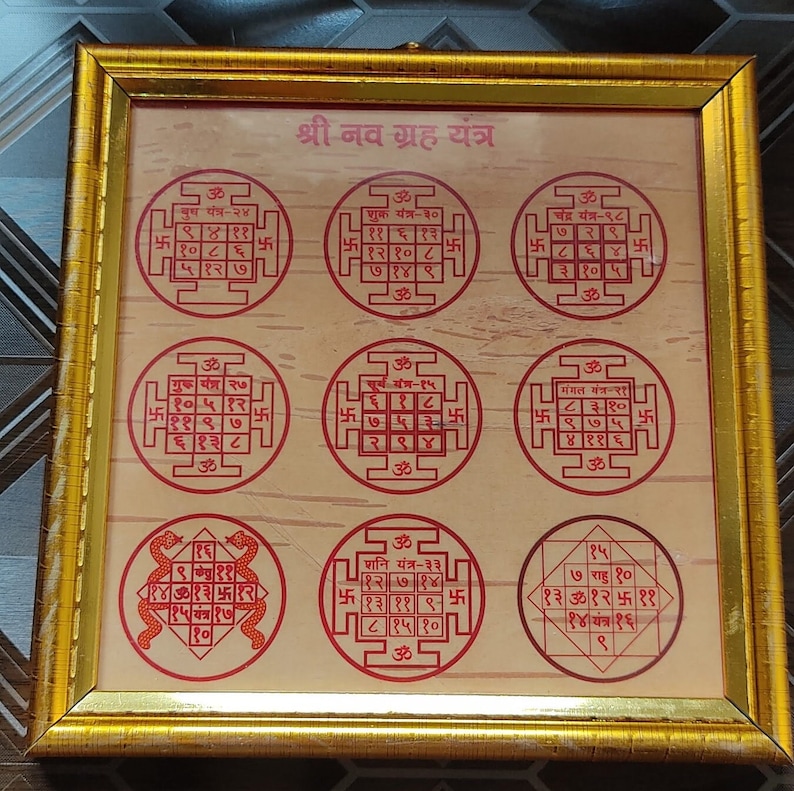 श्री नव ग्रह यंत्र
ॐ
बुध यंत्र-२४
९ ४ ११
१० ८ ६
५ १२ ७
ॐ
शुक्र यंत्र-३०
११ ६ १३
१२ १० ८
७ १४ ९
ॐ
ॐ
चंद्र यंत्र-९८
७ २ ९
८ ६ ४
३ १० ५
ॐ
ॐ
गुक्र यंत्र २७
१० ५ १२
११ ९ ७
६ १३ ८
ॐ
ॐ
सूर्य यंत्र-१५
६ १ ८
७ ५ ३
२ ९ ४
ॐ
ॐ
मंगल यंत्र-२१
८ ३ १०
९ ७ ५
४ ११ ६
ॐ
१६
केतु ११
१४ ॐ १३ १२
१५ यंत्र १७
१०
ॐ
शनि यंत्र-३३
१२ ७ १४
१३ ११ ९
८ १५ १०
ॐ
१५
७ राहु १०
१३ ॐ १२ ११
१४ यंत्र १६
९